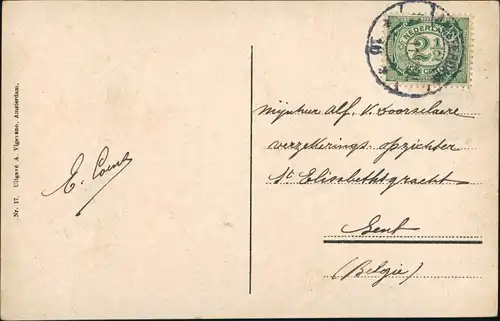 NEDERLAND
2½
CENT
10
Mijnheer Alf. V. Voorselaere
verzekerings opzichter
St Elisabethtgracht
Gent
(Belgie)
E. Coens
Nr. 17. Uitgave A. Vigevano, Amsterdam.